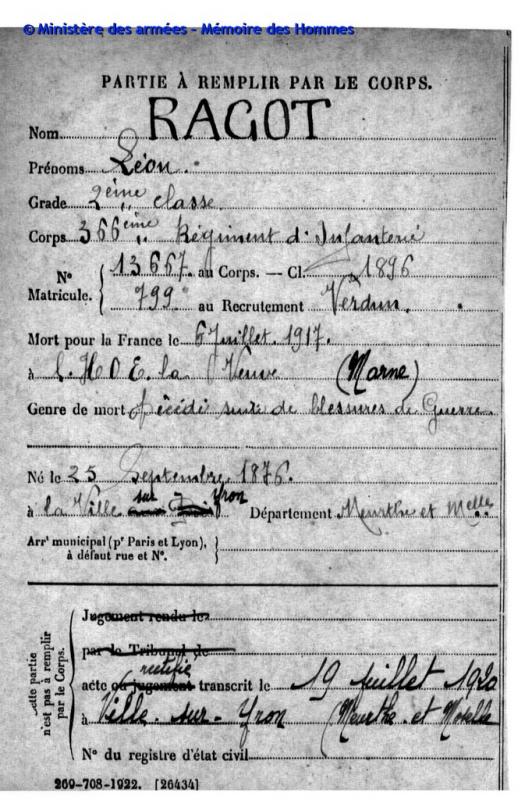 © Ministère des armées - Mémoire des Hommes
PARTIE À REMPLIR PAR LE CORPS.
Nom RAGOT
Prénoms Léon.
Grade 2ème classe
Corps 366ème Régiment d'Infanterie
N° Matricule. { 13.667. au Corps. — Cl. 1896
799 au Recrutement Verdun.
Mort pour la France le 6 Juillet. 1917.
à l'H.O.E. la Veuve (Marne)
Genre de mort Décédé suite de blessures de Guerre.
Né le 25 Septembre 1876.
à la Ville sur Yron Département Meurthe et Melle
Arrt municipal (pr Paris et Lyon), à défaut rue et N°. }
cette partie n'est pas à remplir par le Corps.
Jugement rendu le
par le Tribunal de
rectifié
acte ou jugement transcrit le 19 Juillet 1920
à Ville-sur-Yron (Meurthe et Moselle
N° du registre d'état civil
269-708-1922. [26434]